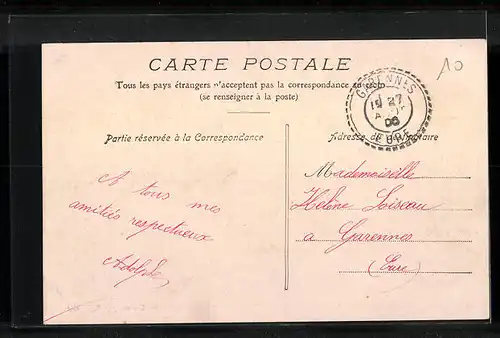 CARTE POSTALE
Tous les pays étrangers n'acceptent pas la correspondance au recto
(se renseigner à la poste)
A0
GARENNES
EURE
Partie réservée à la Correspondance
Adresse du Destinataire
A tous mes
amitiés respectueux
Adolphe
Mademoiselle
Helène Loiseau
a Garennes
(Eure)